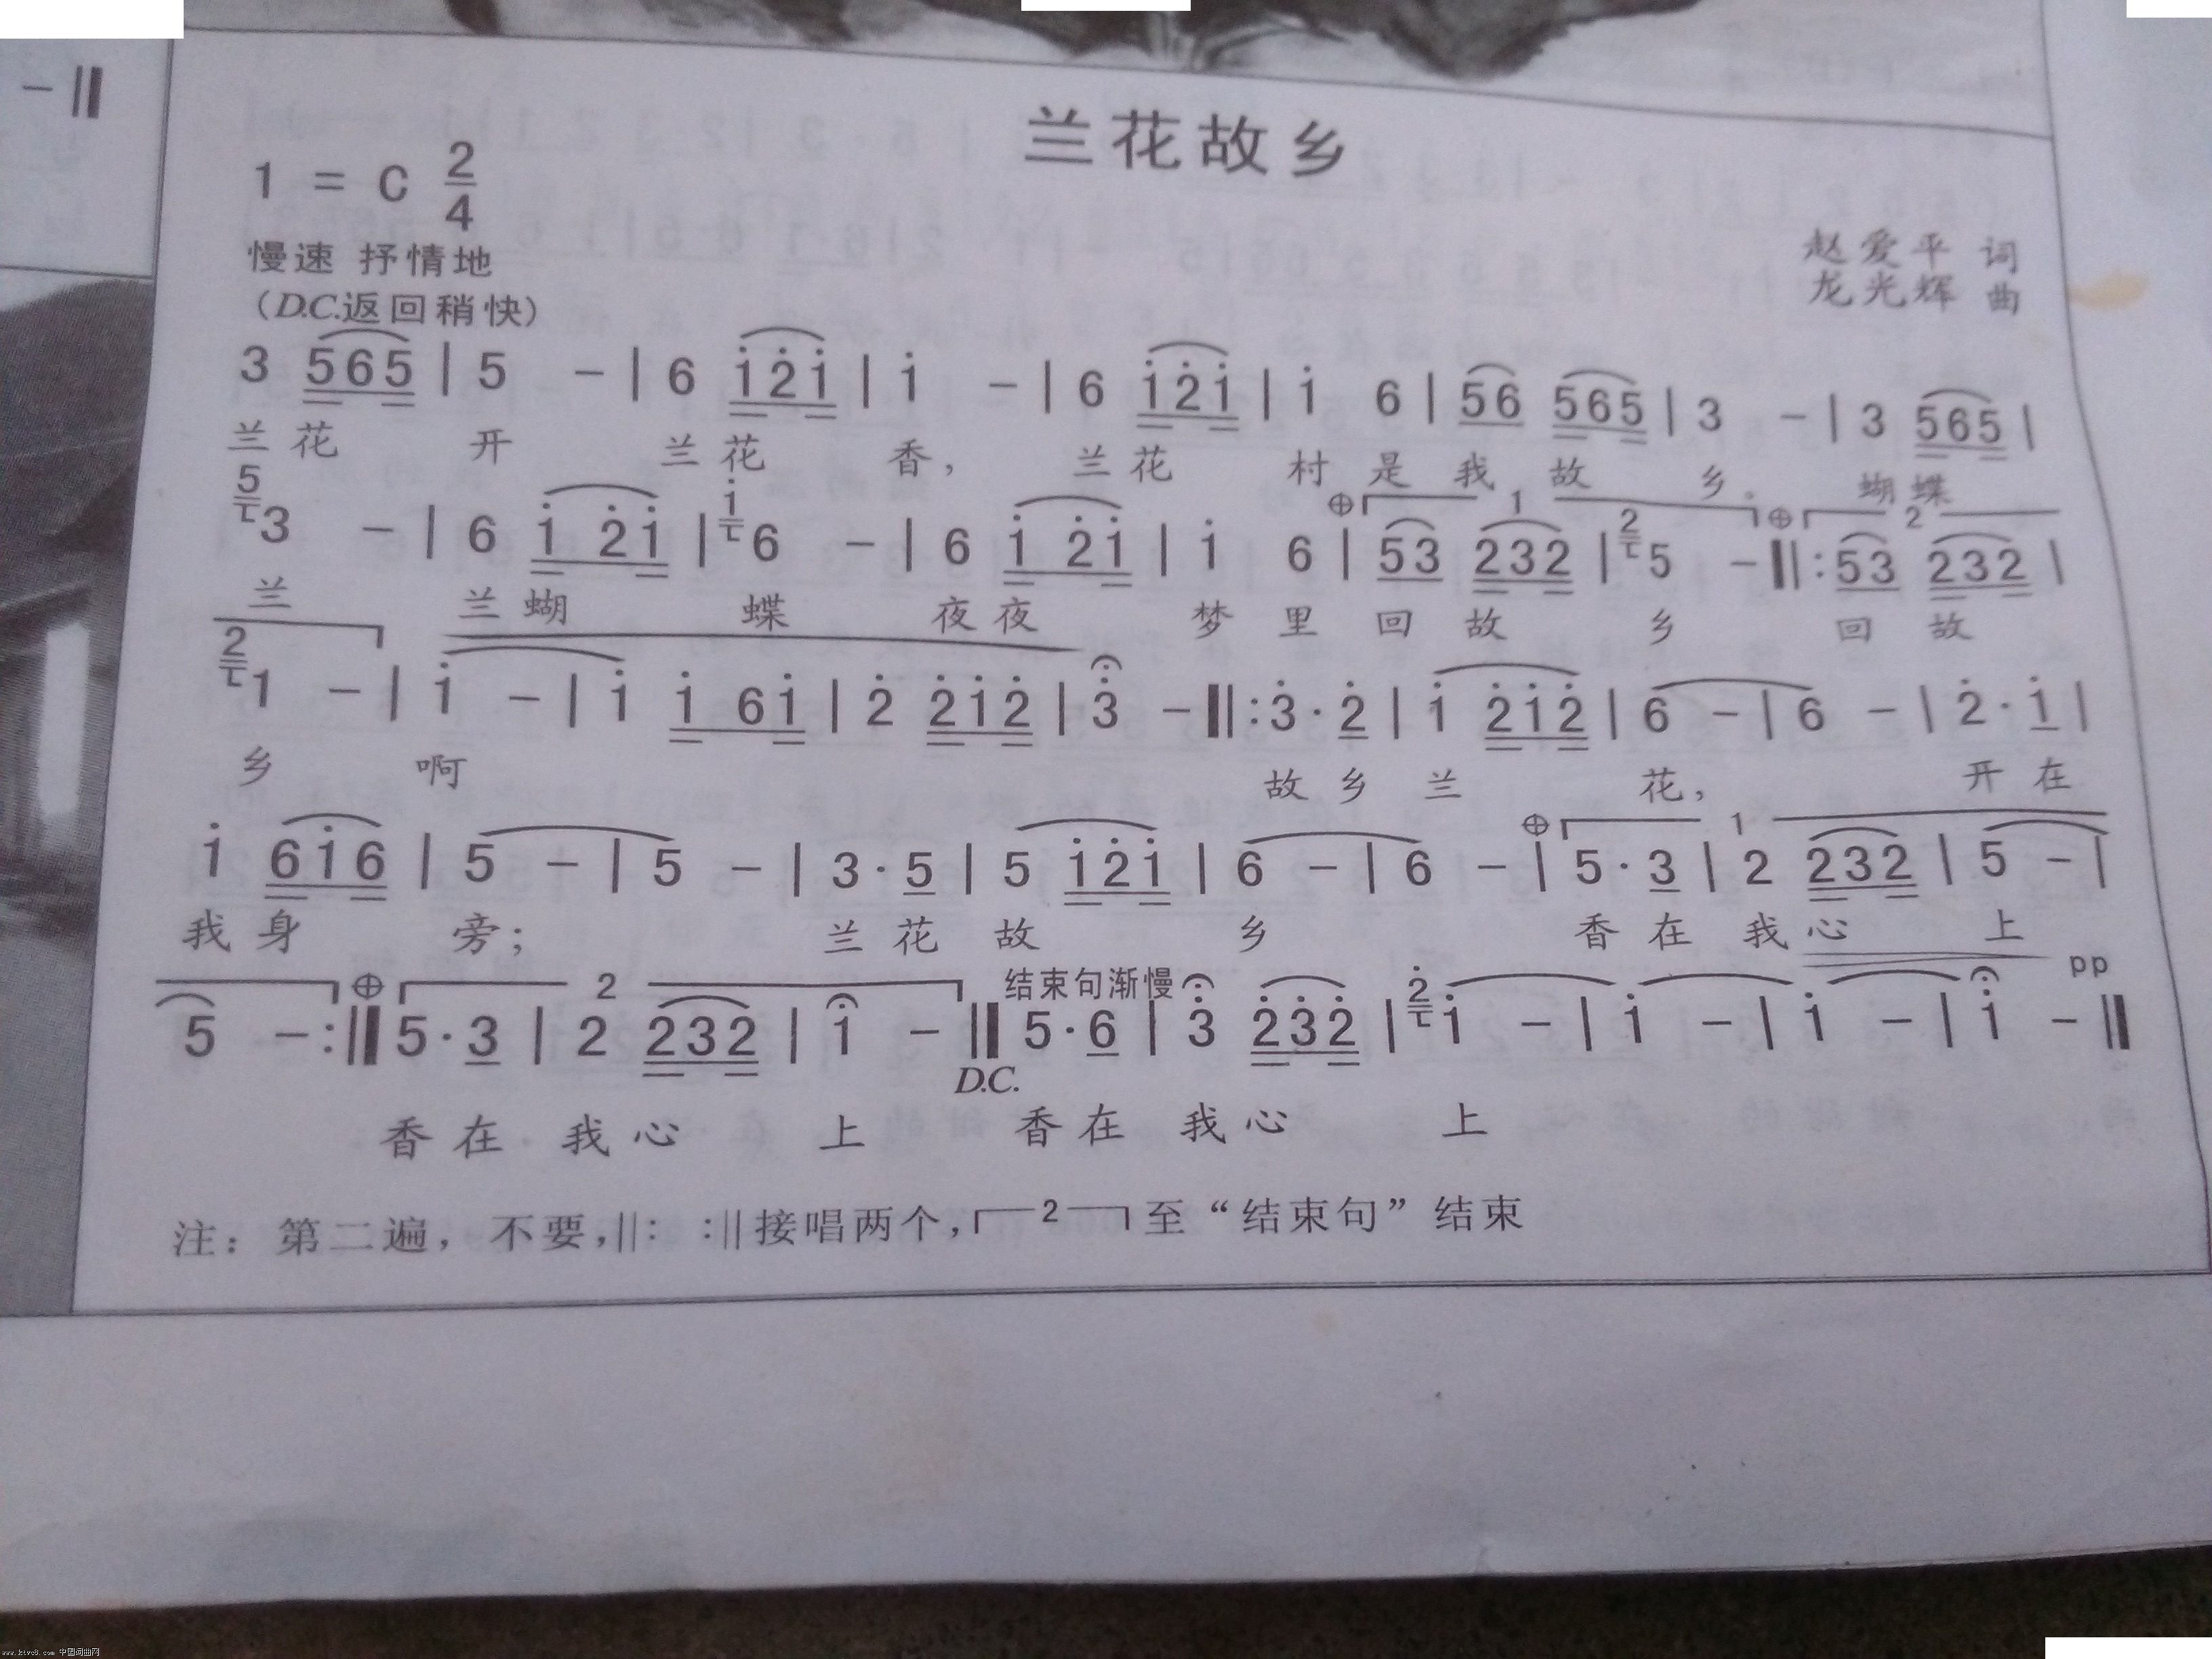 - ‖
兰花故乡
1 = C 2/4
慢速 抒情地
(D.C.返回稍快)
赵爱平 词
龙光辉 曲
3 565 | 5 - | 6 i̇2̇i̇ | i̇ - | 6 i̇2̇i̇ | i̇ 6 | 56 565 | 3 - | 3 565 |
兰花 开 兰花 香， 兰花 村是我故 乡。 蝴蝶
⊕ 1 ⊕ 2
5 3 - | 6 i̇ 2̇i̇ | i̇ 6 - | 6 i̇ 2̇i̇ | i̇ 6 | 53 232 | 2 5 - ‖: 53 232 |
兰 兰蝴 蝶 夜夜 梦里回故 乡 回故
2 1 - | i̇ - | i̇ i̇ 6i̇ | 2̇ 2̇i̇2̇ | 3̇ - ‖: 3̇·2̇ | i̇ 2̇i̇2̇ | 6 - | 6 - | 2̇·i̇ |
乡 啊 故乡兰 花， 开在
⊕ 1
i̇ 6i̇6 | 5 - | 5 - | 3·5 | 5 i̇2̇i̇ | 6 - | 6 - | 5·3 | 2 232 | 5 - |
我身 旁； 兰花故 乡 香在我心 上
⊕ 2 结束句渐慢 pp
5 - :‖ 5·3 | 2 232 | i̇ - ‖ 5·6 | 3̇ 2̇3̇2̇ | 2̇ i̇ - | i̇ - | i̇ - | i̇ - ‖
D.C.
香在我心 上 香在我心 上
注：第二遍，不要，‖: :‖接唱两个，┌─2─┐至“结束句”结束
www.ktvc8.com 中国词曲网